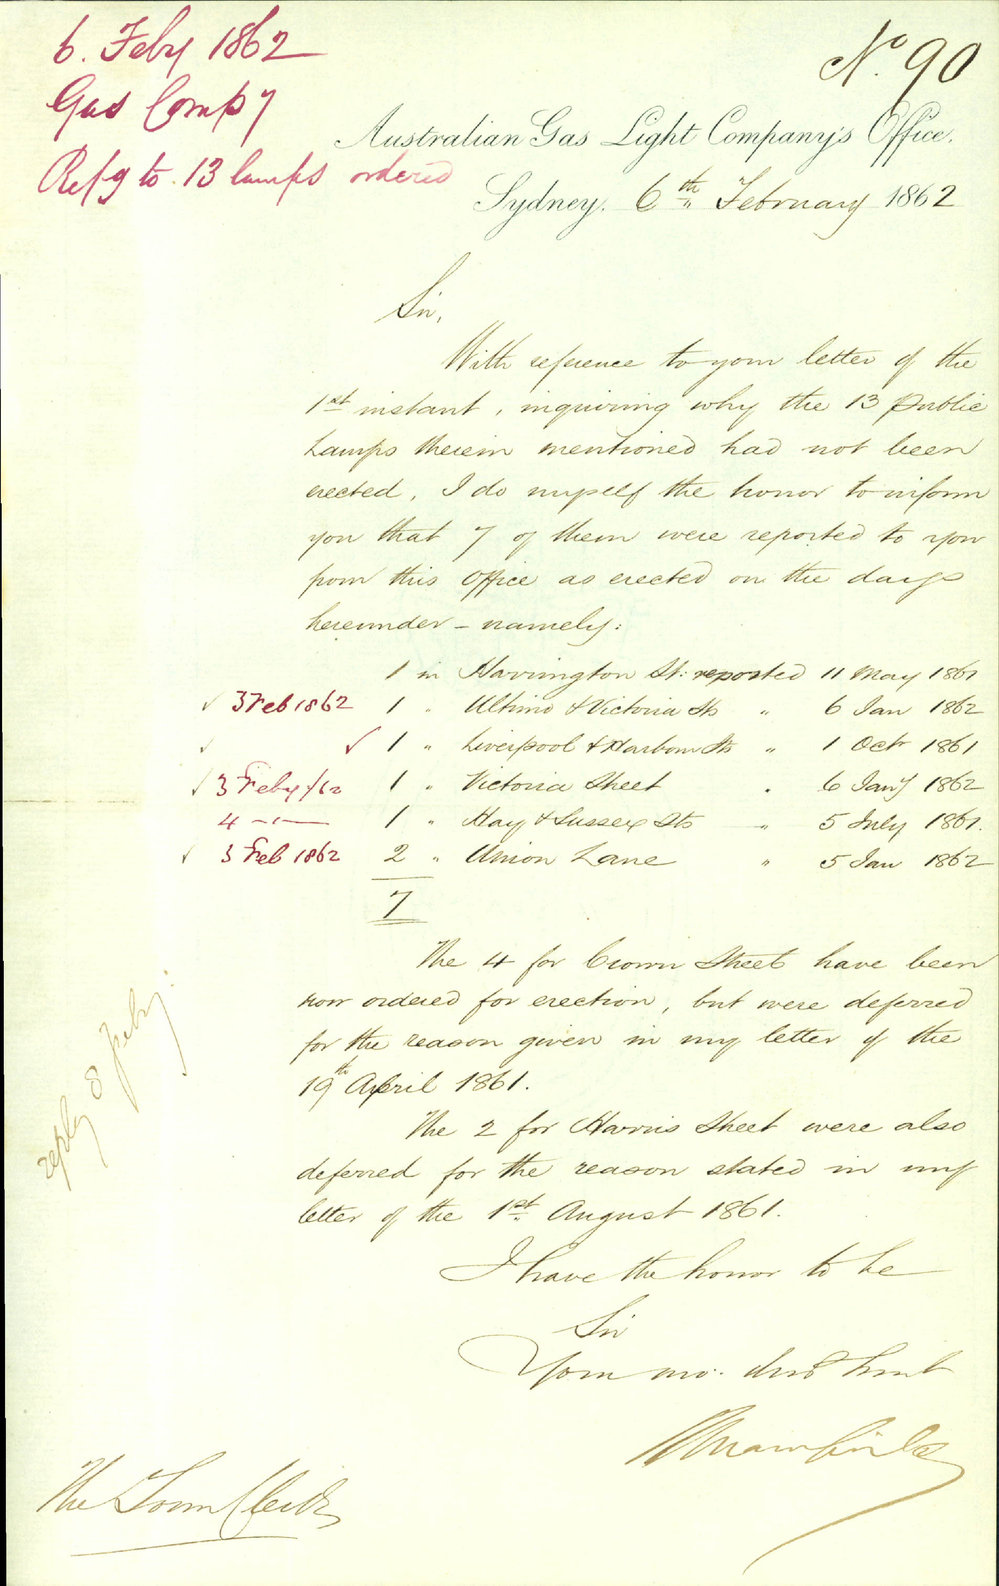 6. Feby 1862
Gas Compy
Refg to 13 lamps ordered
No. 90
Australian Gas Light Company's Office.
Sydney. 6th February 1862
Sir,
With reference to your letter of the
1st instant, inquiring why the 13 public
Lamps therein mentioned had not been
erected, I do myself the honor to inform
you that 7 of them were reported to you
from this Office as erected on the days
hereunder - namely:
1 in Harrington St: reported 11 May 1861
✓ 3 Feb 1862 1 " Ultimo & Victoria Sts " 6 Jan 1862
✓ ✓ 1 " Liverpool & Harbour Sts " 1 Octr 1861
✓ 3 Feby /62 1 " Victoria Street " 6 Jany 1862
4 -"- 1 " Hay & Sussex Sts " 5 July 1861.
✓ 3 Feb 1862 2 " Union Lane " 5 Jan 1862
7
The 4 for Crown Street have been
now ordered for erection, but were deferred
for the reason given in my letter of the
19th April 1861.
The 2 for Harris Street were also
deferred for the reason stated in my
letter of the 1st August 1861.
reply 8 Feby.
I have the honor to be
Sir
Your mo. obed Servt
The Town Clerk